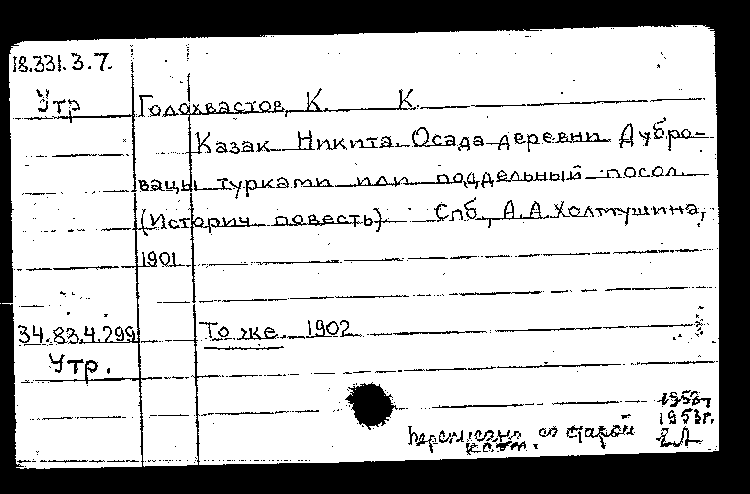 18.331.3.7.
Утр Голохвастов, К. К.
Казак Никита. Осада деревни Дубро-
вацы турками или поддельный посол.
(Историч. повесть). Спб., А.А.Холмушина,
1901
34.83.4.299 То же. 1902
Утр.
1953г.
переписано со старой